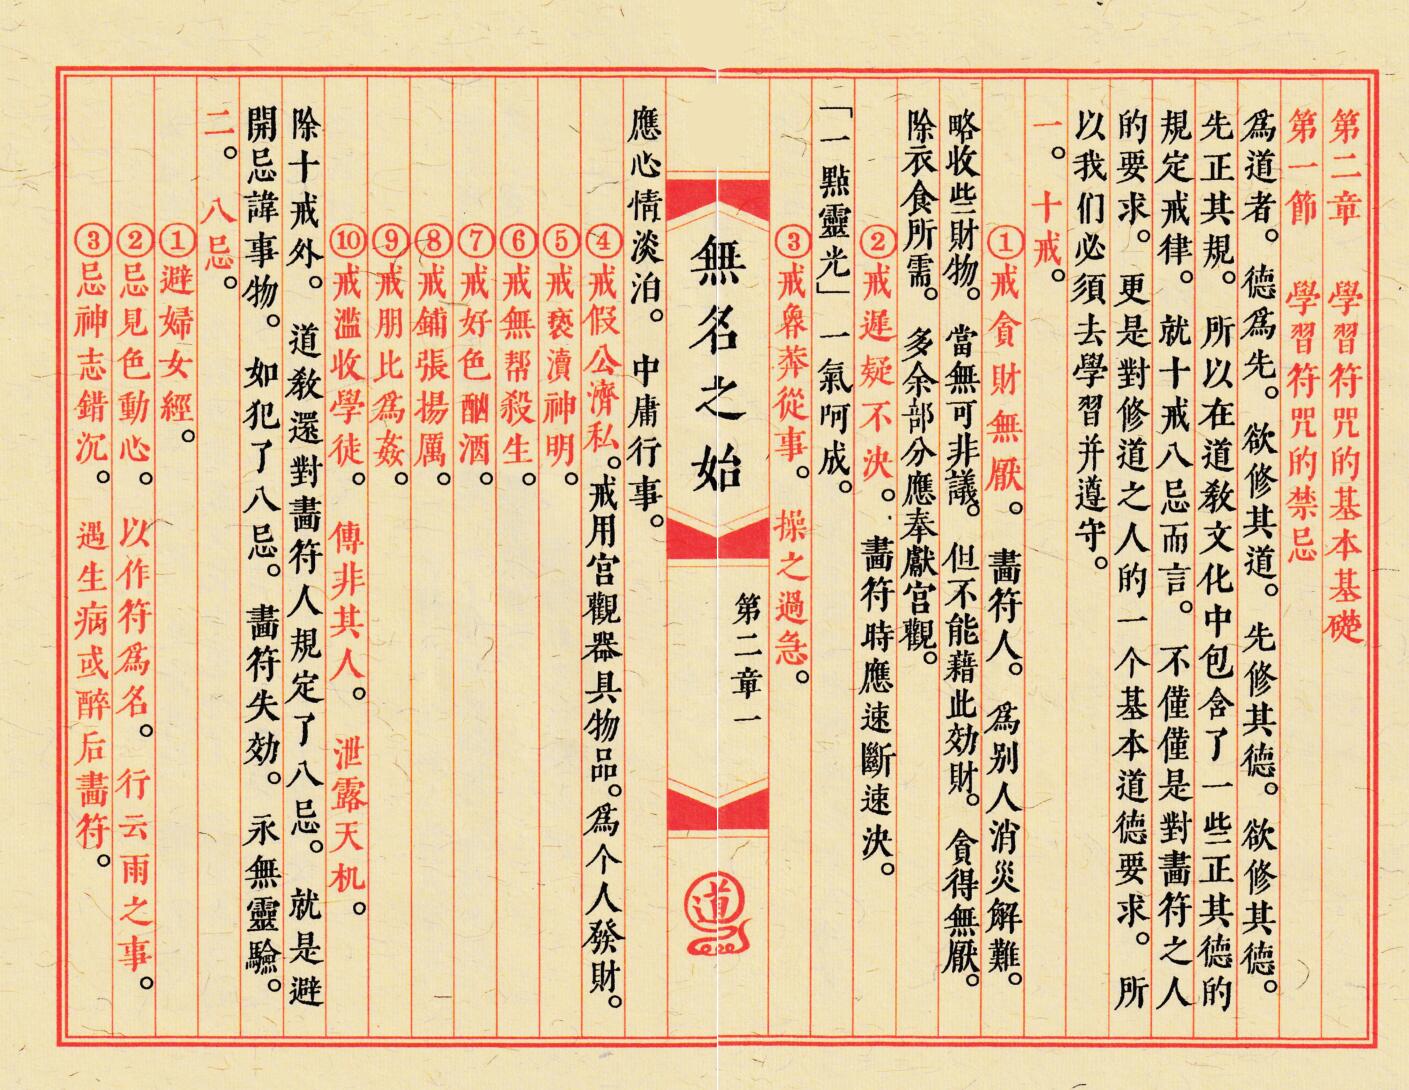 第二章　學習符咒的基本基礎
第一節　學習符咒的禁忌
爲道者。德爲先。欲修其道。先修其德。欲修其德。
先正其規。所以在道敎文化中包含了一些正其德的
規定戒律。就十戒八忌而言。不僅僅是對畵符之人
的要求。更是對修道之人的一个基本道德要求。所
以我们必須去學習并遵守。
一。十戒。
①戒貪財無厭。畵符人。爲别人消災解難。
略收些財物。當無可非議。但不能藉此効財。貪得無厭。
除衣食所需。多余部分應奉獻宫觀。
②戒遲疑不決。畵符時應速斷速決。
「一點靈光」一氣呵成。
③戒魯莽從事。操之過急。
無名之始
第二章一
道
④戒假公濟私。戒用宫觀器具物品。爲个人發財。
應心情淡泊。中庸行事。
⑤戒褻瀆神明。
⑥戒無帮殺生。
⑦戒好色酗酒。
⑧戒鋪張揚厲。
⑨戒朋比爲姦。
⑩戒濫收學徒。傳非其人。泄露天机。
除十戒外。道敎還對畵符人規定了八忌。就是避
開忌諱事物。如犯了八忌。畵符失効。永無靈驗。
二。八忌。
①避婦女經。
②忌見色動心。以作符爲名。行云雨之事。
③忌神志錯沉。遇生病或醉后畵符。